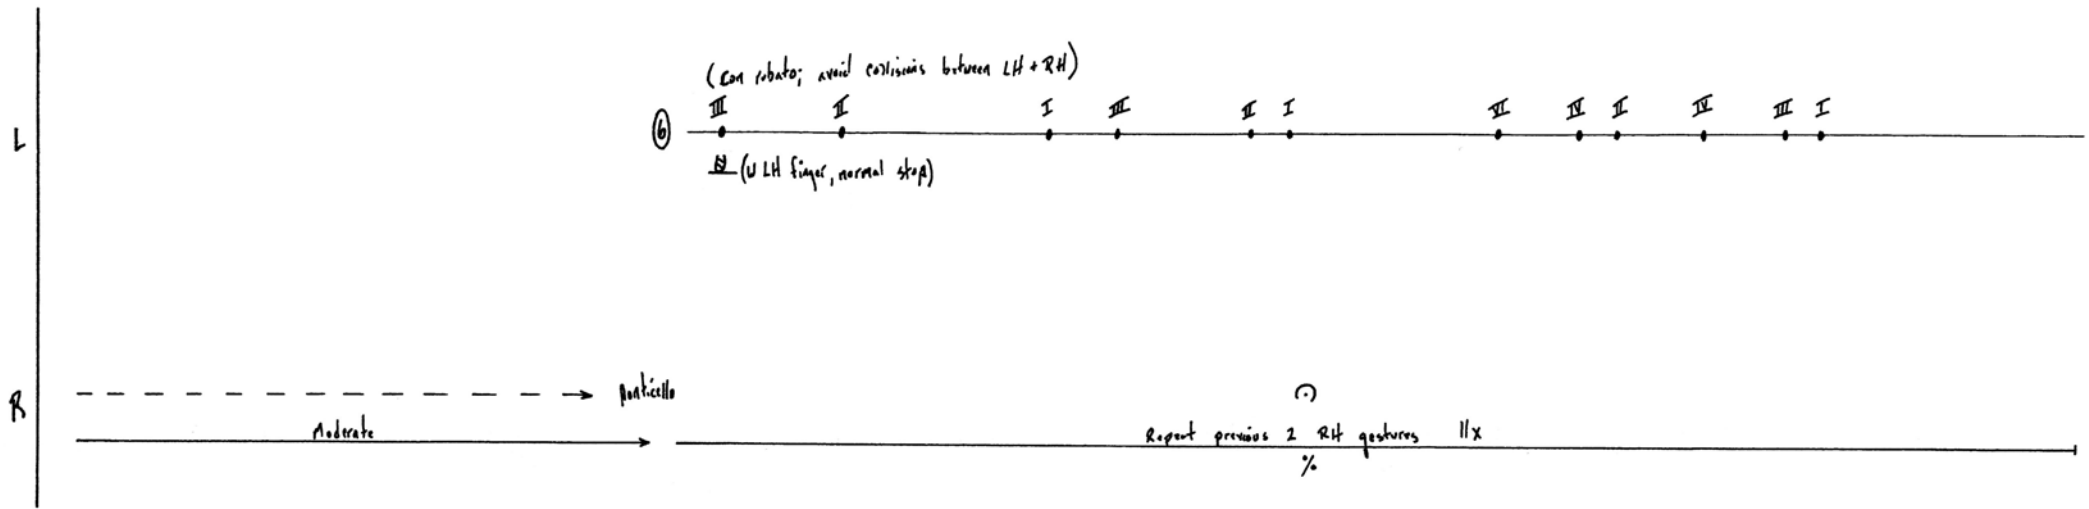 (con rubato; avoid collisions between LH + RH)
III II I III II I VI IV II IV III I
L
6
(w LH finger, normal stop)
R
Ponticello
Moderate
Repeat previous 2 RH gestures 11x
%